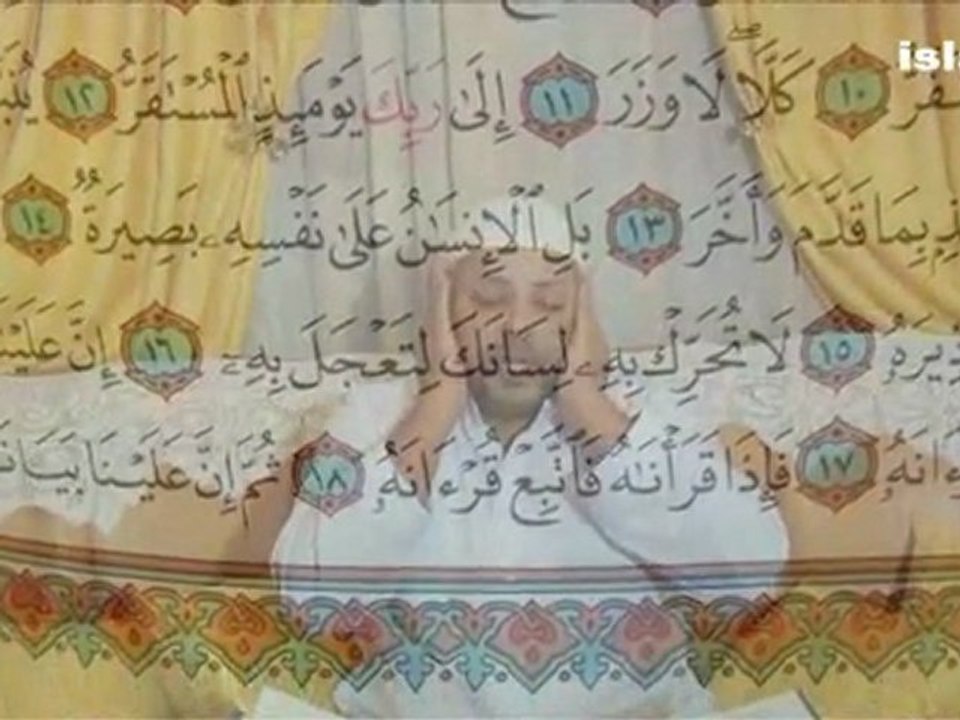 isl
ـفر ١٠ كَلَّا لَا وَزَرَ ١١ إِلَىٰ رَبِّكَ يَوْمَئِذٍ ٱلْمُسْتَقَرُّ ١٢ يُنَبَّـ
ـذٍ بِمَا قَدَّمَ وَأَخَّرَ ١٣ بَلِ ٱلْإِنسَـٰنُ عَلَىٰ نَفْسِهِۦ بَصِيرَةٌ ١٤
ـذِيرَهُۥ ١٥ لَا تُحَرِّكْ بِهِۦ لِسَانَكَ لِتَعْجَلَ بِهِۦٓ ١٦ إِنَّ عَلَيْنَـ
ـءَانَهُۥ ١٧ فَإِذَا قَرَأْنَـٰهُ فَٱتَّبِعْ قُرْءَانَهُۥ ١٨ ثُمَّ إِنَّ عَلَيْنَا بَيَانَـ